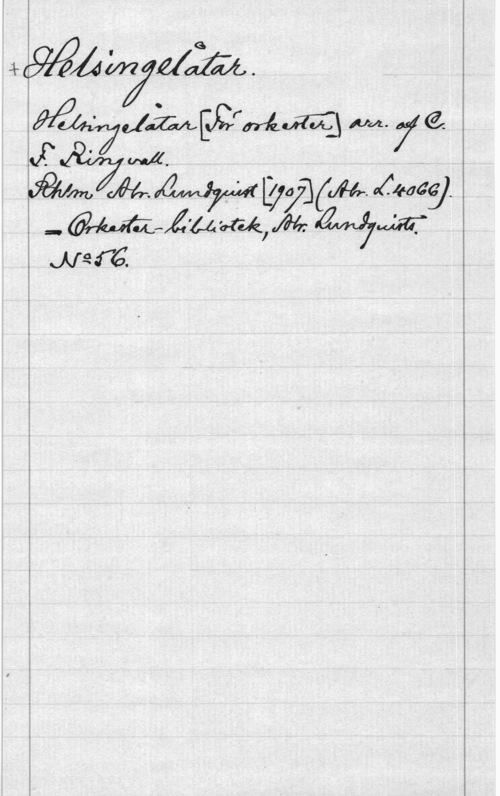 + Helsingelåtar.
Helsingelåtar [för orkester] arr. af C.
F. Ringvall.
Sthlm Abr. Lundquist [1907] (Abr. L. 4066).
= Orkester-bibliotek, Abr. Lundquists,
No 56.